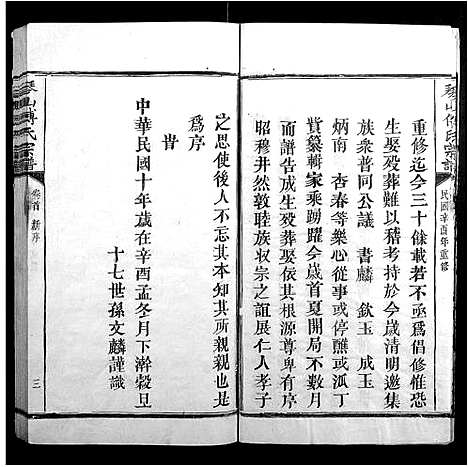 琴山傅氏宗譜
民國辛酉年重修
重修迄今三十餘載若不亟爲倡修惟恐
生娶殁葬難以稽考持於今歲清明邀集
族衆普阿公議 書麟 欽玉 成玉
炳南 杏春等樂心從事或停醮或派丁
貲纂輯家乘踴躍今歲首夏開局不數月
而譜告成生殁葬娶依其根源尊卑有序
昭穆井然敦睦族收宗之誼展仁人孝子
之思使後人不忘其本知其所親親也是
爲序
旹
中華民國十年歲在辛酉孟冬月下澣穀旦
十七世孫文麟謹識
琴山傅氏宗譜
卷首 新序
三